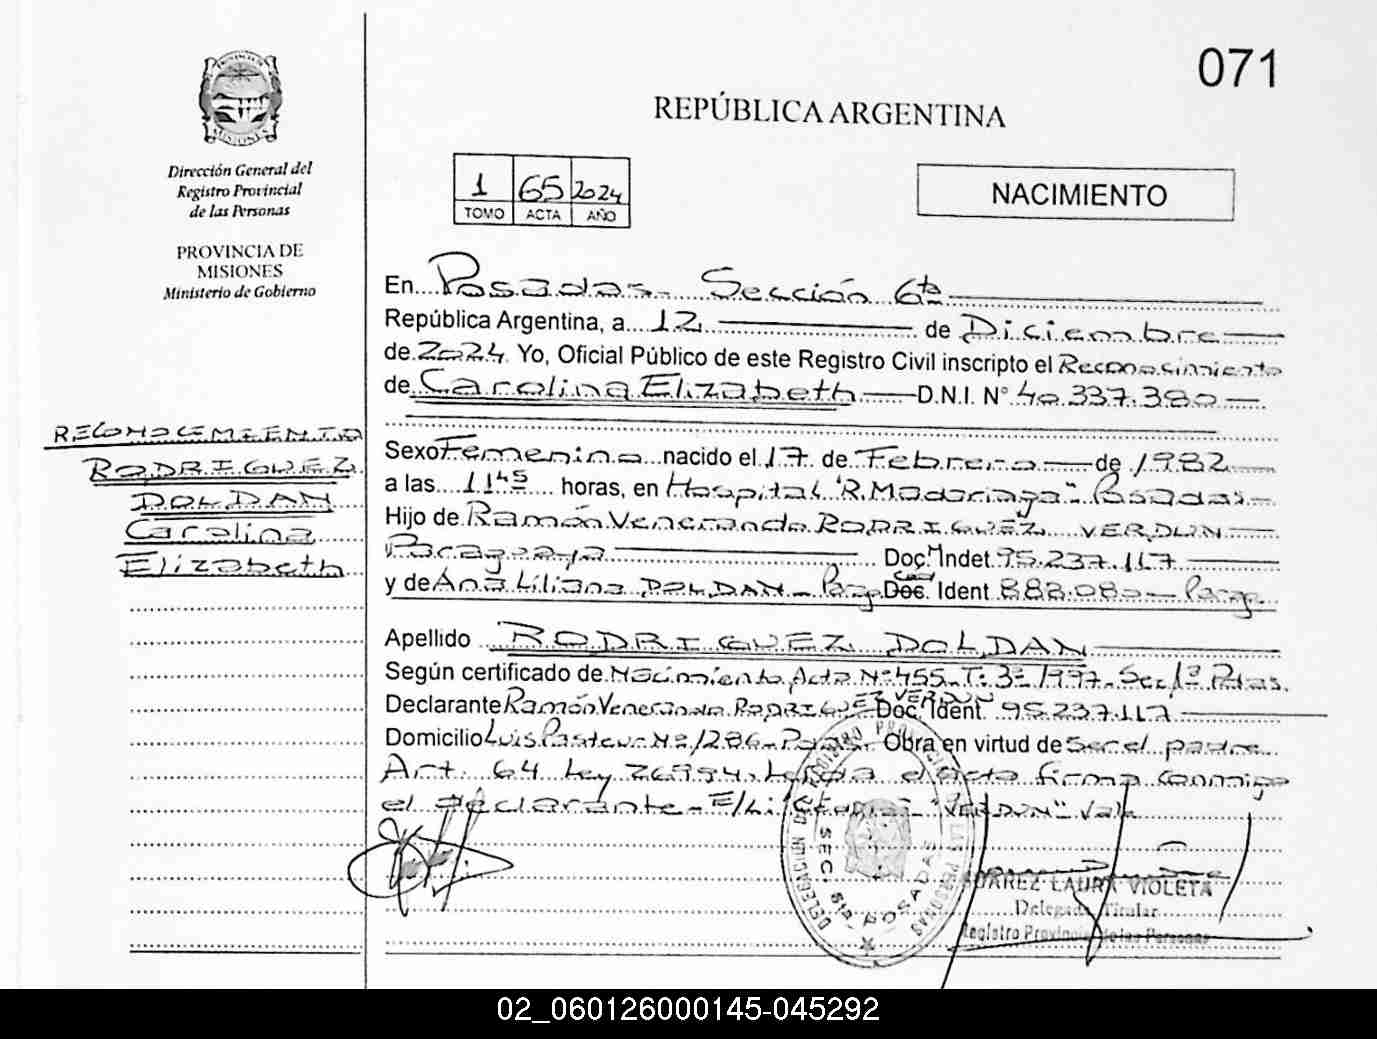 071
REPÚBLICA ARGENTINA
PROVINCIA DE
MISIONES
Dirección General del
Registro Provincial
de las Personas
PROVINCIA DE
MISIONES
Ministerio de Gobierno
1 65 2024
TOMO ACTA AÑO
NACIMIENTO
En Posadas - Sección 6ta
República Argentina, a 12 de Diciembre
de 2024 Yo, Oficial Público de este Registro Civil inscripto el Reconocimiento
de Carolina Elizabeth D.N.I. N° 40.337.380
RECONOCIMIENTO
RODRIGUEZ
DOLDAN
Carolina
Elizabeth
Sexo Femenino nacido el 17 de Febrero de 1982
a las 11 45 horas, en Hospital "R. Madariaga" Posadas
Hijo de Ramón Venerando RODRIGUEZ VERDUN
Paraguaya Doc. Ident. 95.237.117
y de Ana Liliana DOLDAN - Parag Doc. Ident 888.080 - Parag
Apellido RODRIGUEZ DOLDAN
Según certificado de Nacimiento Acta N° 455 - T: 3° 1997 - Sec 1° Pdas.
Declarante Ramón Venerando RODRIGUEZ VERDUN Doc. Ident 95.237.117
Domicilio Luis Pasteur N° 1286 - Obra en virtud de ser el padre
Art. 64 Ley 26994. Leída el acta firma conmigo
el declarante - E/Li "VERDUN" Vale
DELEGACIÓN DEL REGISTRO PROVINCIAL DE LAS PERSONAS
SEC. 6ta. POSADAS
SUAREZ LAURA VIOLETA
Delegada Titular
Registro Provincial de las Personas
02_060126000145-045292